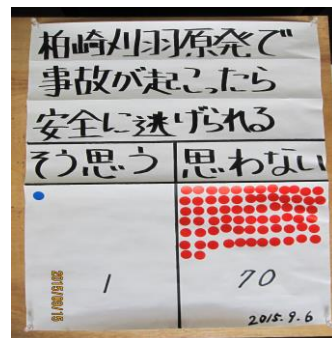 柏崎刈羽原発で
事故が起こったら
安全に逃げられる
そう思う 思わない
1 70
2015/09/15
2015.9.6